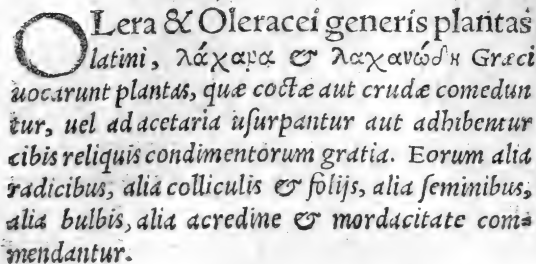 OLera & Oleracei generis plantas
latini, λάχανα & λαχανώδη Græci
uocarunt plantas, quæ coctæ aut crudæ comedun
tur, uel ad acetaria uſurpantur aut adhibentur
cibis reliquis condimentorum gratia. Eorum alia
radicibus, alia colliculis & folijs, alia ſeminibus,
alia bulbis, alia acredine & mordacitate com=
mendantur.